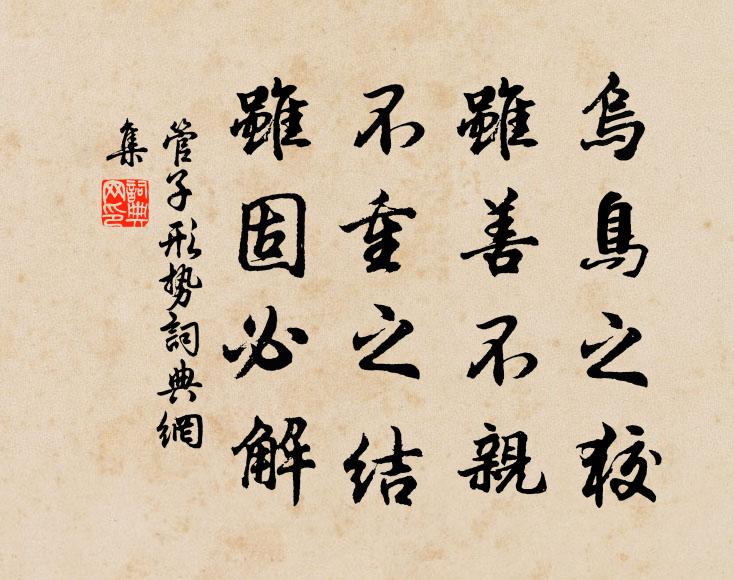 烏鳥之狡
雖善不親
不重之結
雖固必解
管子形勢詞典網
集
詞典
网印